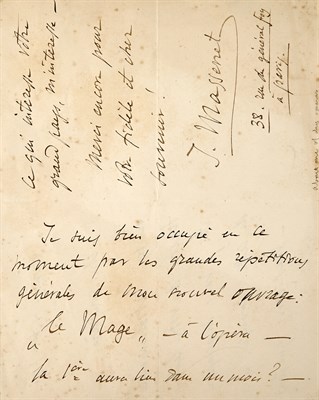 Je suis bien occupé en ce
moment par les grandes répétitions
générales de mon nouvel ouvrage:
"le Mage" — à l'opéra —
la 1ère aura lieu dans un mois? —
Ce qui intéresse votre
grand pays, m'intéresse —
Merci encore pour
votre fidèle et cher
souvenir!
J. Massenet
38. rue du général Foy
à Paris.